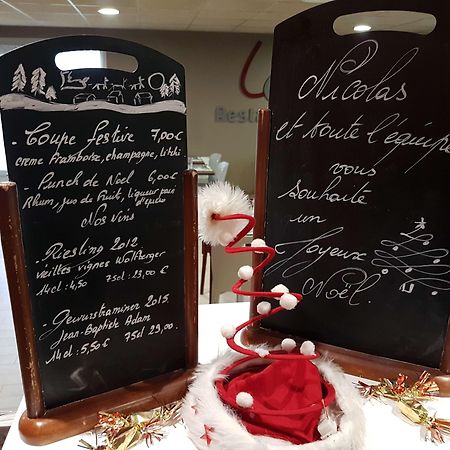 Coupe festive 7,00€
creme Framboise, champagne, Litchi
Punch de Noel 6,00€
Rhum, jus de Fruit, liqueur pain
d'épices
Nos Vins
Riesling 2012
vieilles vignes Wolfberger
14cl: 4,50 75cl: 23,00€
Gewurstraminer 2015
Jean-Baptiste Adam
14cl: 5,50€ 75cl: 29,00.
Nicolas
et toute l'équipe
vous
souhaite
un
Joyeux
Noël.
Resta